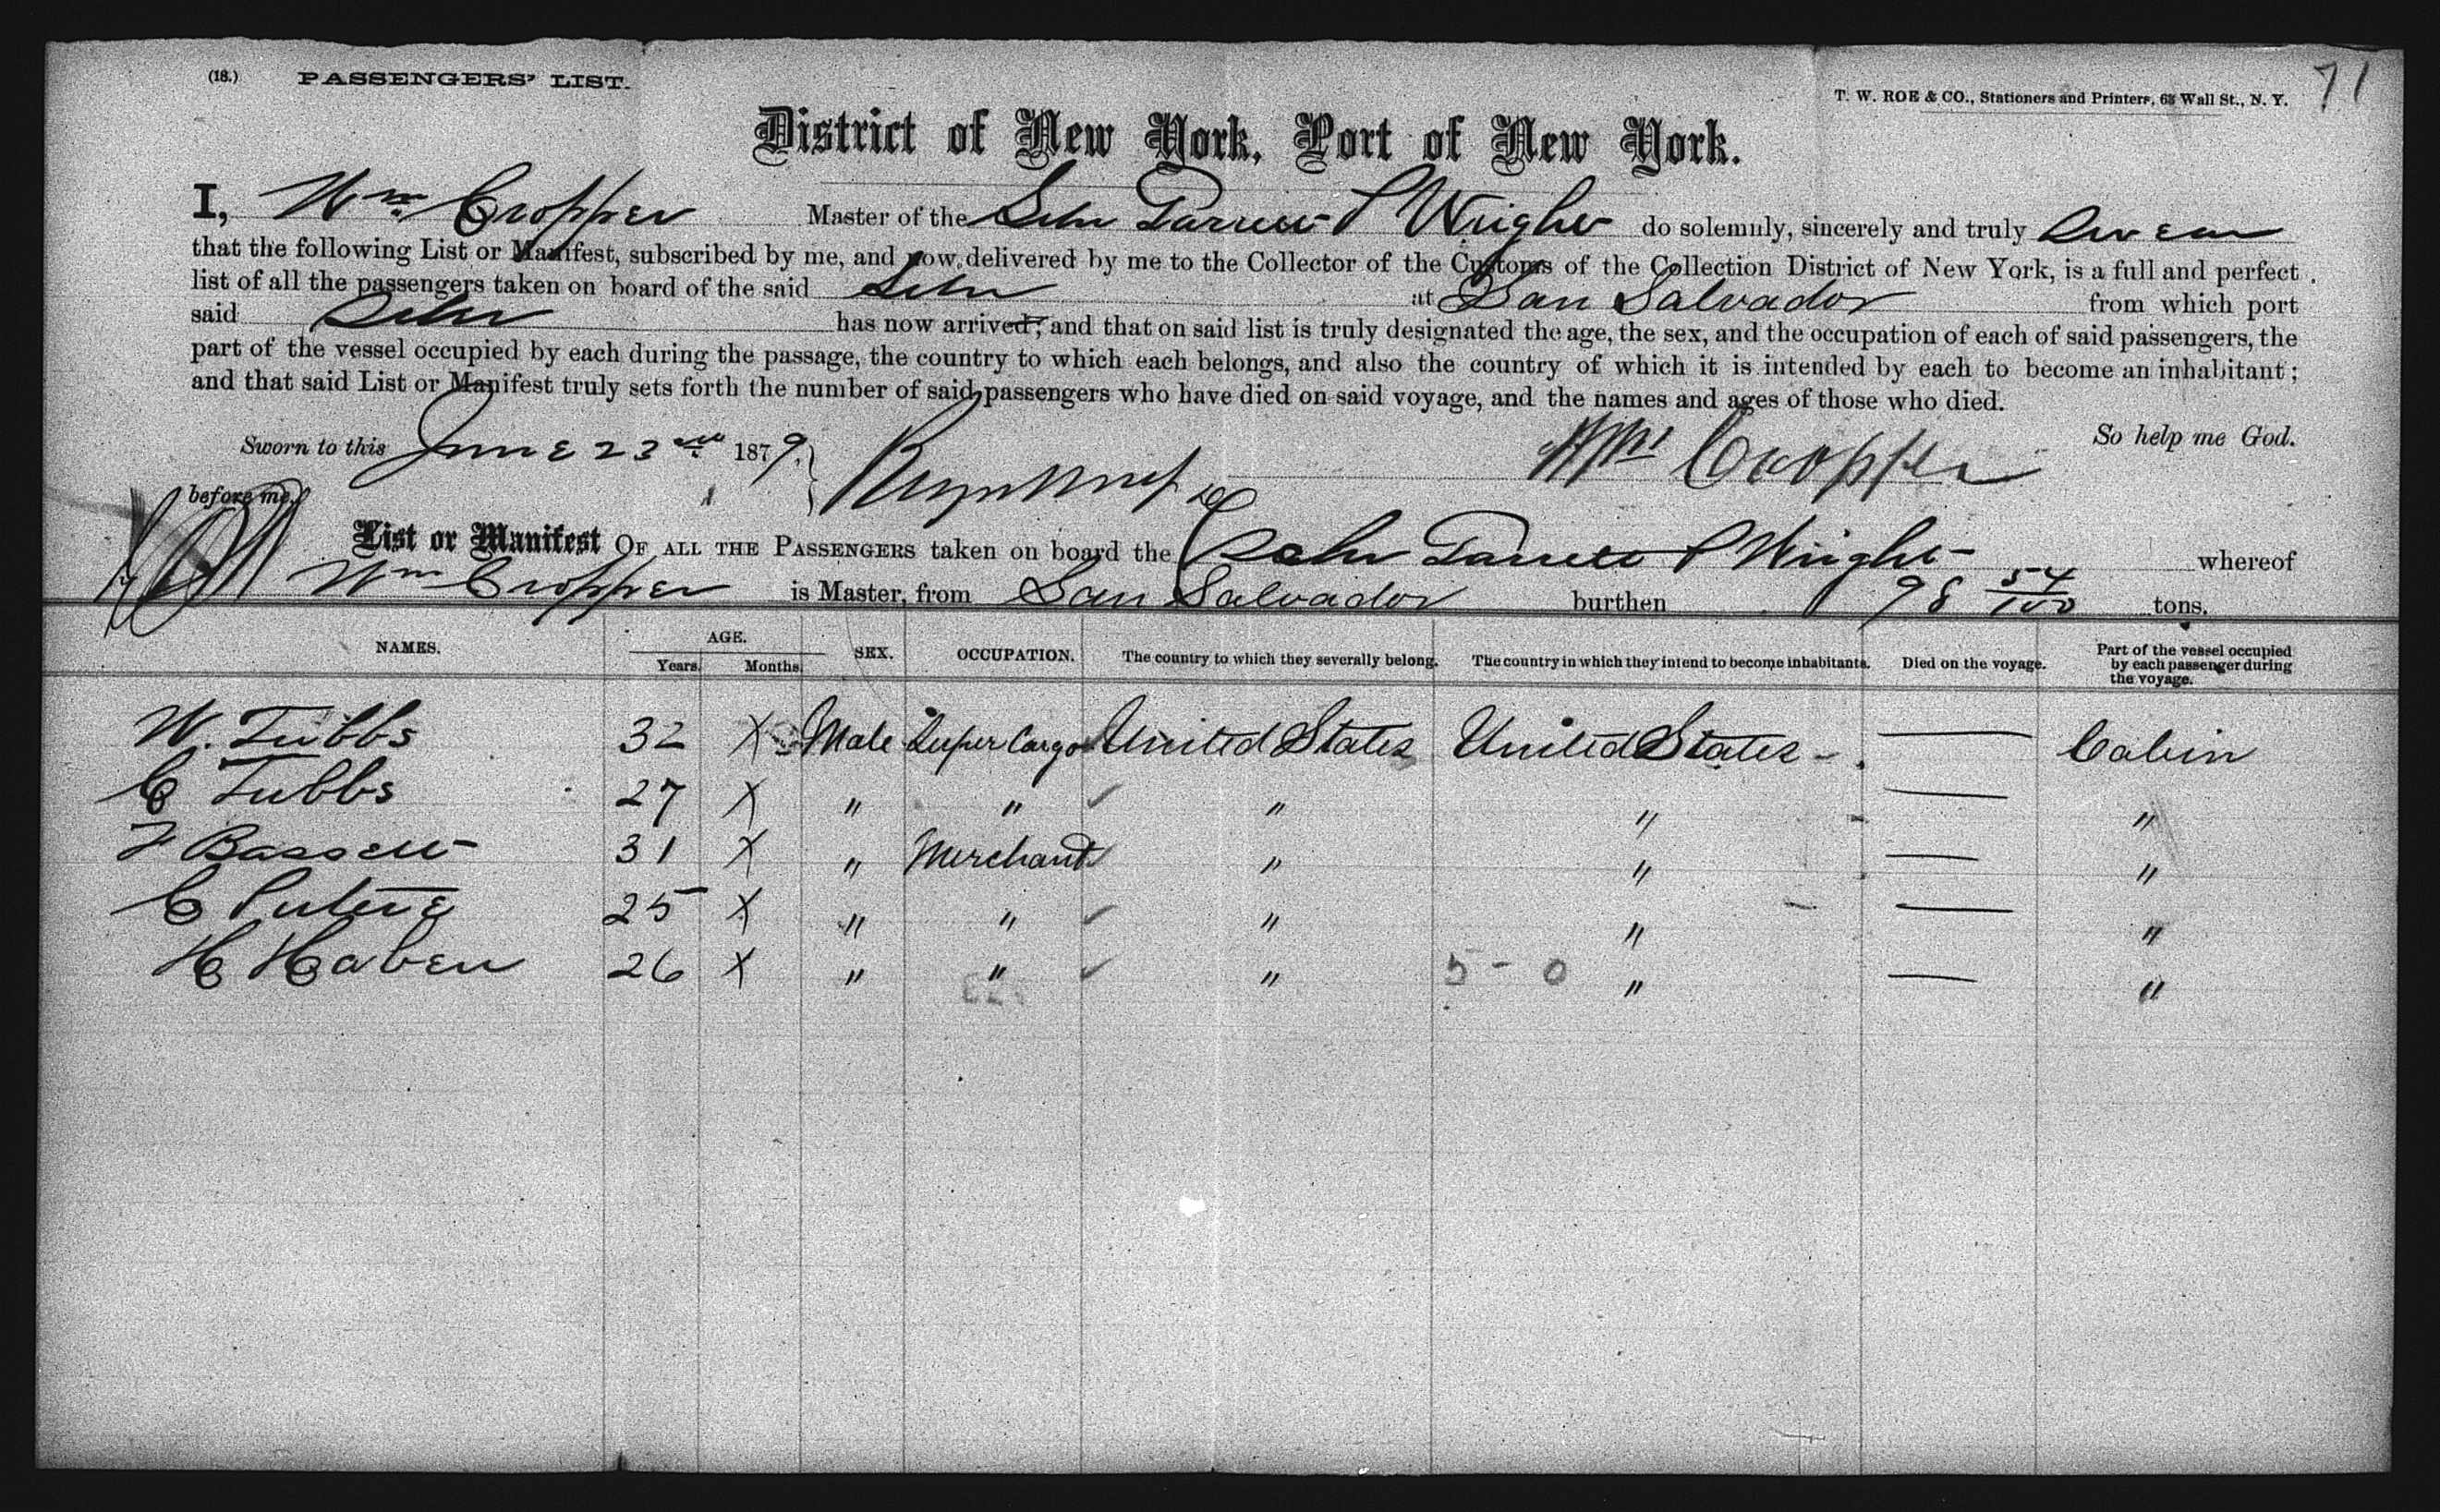 (18.) PASSENGERS' LIST.
T. W. ROE & CO., Stationers and Printers, 63 Wall St., N. Y.
71
District of New York, Port of New York.
I, Wm. Cropper Master of the Schr P Wright do solemnly, sincerely and truly Swear
that the following List or Manifest, subscribed by me, and now delivered by me to the Collector of the Customs of the Collection District of New York, is a full and perfect
list of all the passengers taken on board of the said Schr at San Salvador from which port
said Schr has now arrived; and that on said list is truly designated the age, the sex, and the occupation of each of said passengers, the
part of the vessel occupied by each during the passage, the country to which each belongs, and also the country of which it is intended by each to become an inhabitant;
and that said List or Manifest truly sets forth the number of said passengers who have died on said voyage, and the names and ages of those who died.
So help me God.
Sworn to this June 23rd 1879. Wm Cropper
before me,
List or Manifest OF ALL THE PASSENGERS taken on board the Schr P Wright whereof
Wm Cropper is Master, from San Salvador burthen 98 54/100 tons.
NAMES. AGE. Years. Months. SEX. OCCUPATION. The country to which they severally belong. The country in which they intend to become inhabitants. Died on the voyage. Part of the vessel occupied by each passenger during the voyage.
W. Tubbs 32 X Male Super Cargo United States United States — Cabin
C Tubbs 27 X " " " " — "
F Bassett 31 X " Merchant " " — "
C 25 X " " " " — "
H Haven 26 X " " " 5 - 0 " — "